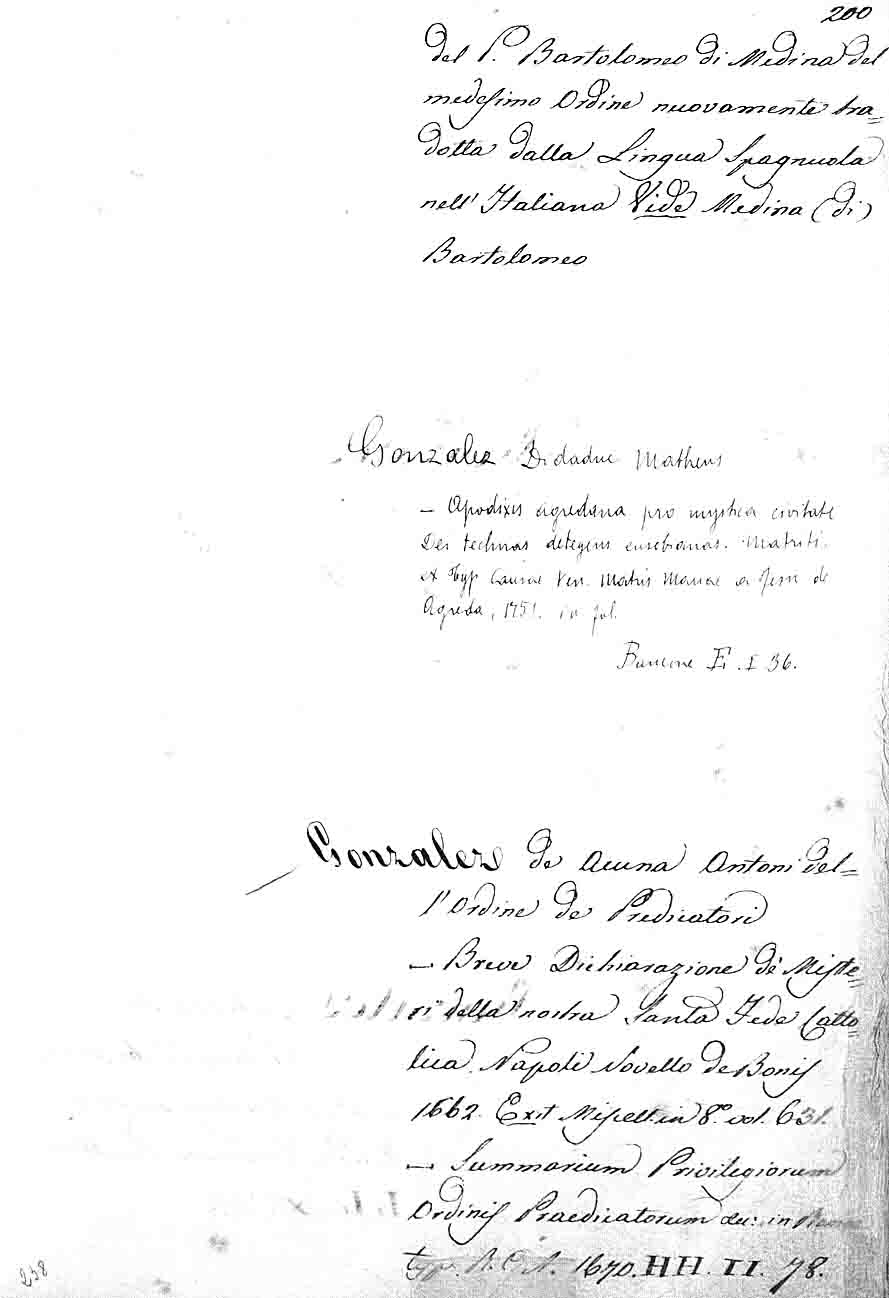 200
del P. Bartolomeo di Medina del
medesimo Ordine nuovamente tra=
dotta dalla Lingua Spagnuola
nell' Italiana Vide Medina (di)
Bartolomeo
Gonzalez Didacus Matheus
— Apodixis agredana pro mystica civitate
Dei technas detegens eusebianas. Matriti.
ex Typ Causae Ven. Matris Mariae a Jesu de
Agreda, 1751. in fol.
E. I 36.
Gonzalez de Acuna Antoni del=
l'Ordine de Predicatori
— Breve Dichiarazione de' Miste=
ri della nostra Santa Fede Catto=
lica. Napoli Novello de Bonis
1662. Exit Miscell. in 8.° vol. 631.
— Summarium Privilegiorum
Ordinis Praedicatorum &c: in
typ. R. C. A. 1670. HH. II. 78.
238